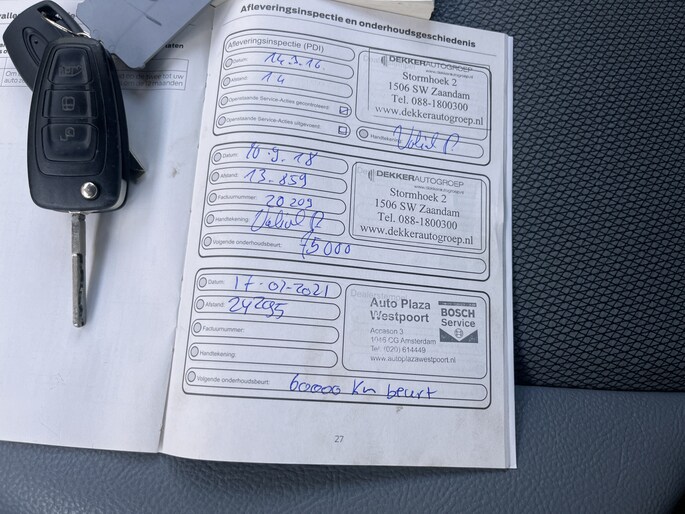 Afleveringsinspectie en onderhoudsgeschiedenis
Afleveringsinspectie (PDI)
Datum: 14.3.16.
Afstand: 14
Openstaande Service-Acties gecontroleerd:
Openstaande Service-Acties uitgevoerd:
DEKKERAUTOGROEP
www.dekkerautogroep.nl
Stormhoek 2
1506 SW Zaandam
Tel. 088-1800300
www.dekkerautogroep.nl
Handtekening:
Datum: 10.9.18
Afstand: 13.859
Factuurnummer: 20209
Handtekening:
Volgende onderhoudsbeurt: 45000
DEKKERAUTOGROEP
www.dekkerautogroep.nl
Stormhoek 2
1506 SW Zaandam
Tel. 088-1800300
www.dekkerautogroep.nl
Datum: 17-02-2021
Afstand: 24295
Factuurnummer:
Handtekening:
Volgende onderhoudsbeurt: 60000 Km beurt
Auto Plaza
Westpoort
BOSCH
Service
Accason 3
CG Amsterdam
Tel. (020) 614449
www.autoplazawestpoort.nl
27